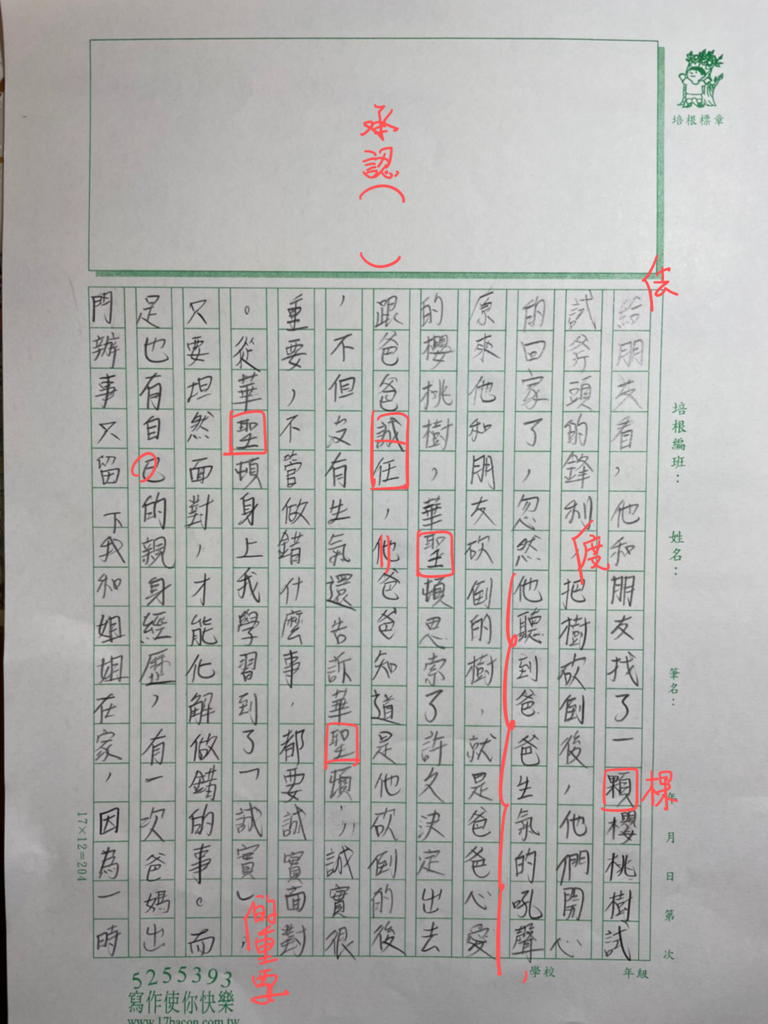 承認（　）
培根標章
給朋友看，他和朋友找了一顆櫻桃樹試
試斧頭的鋒利把樹砍倒後，他們開心
的回家了，忽然他聽到爸爸生氣的吼聲
原來他和朋友砍倒的樹，就是爸爸心愛
的櫻桃樹，華聖頓思索了許久決定出去
跟爸爸誠任，他爸爸知道是他砍倒的後
，不但沒有生氣還告訴華聖頓，，，誠實很
重要，不管做錯什麼事，都要誠實面對
。從華聖頓身上我學習到了「誠實」，
只要坦然面對，才能化解做錯的事。而
足也有自己的親身經歷，有一次爸媽出
門辦事只留下我和姐姐在家，因為一時
度
棵
的重要
培根編班：
姓名：
筆名：
年 月 日 第 次
17×12=204
學校
年級
5255393
寫作使你快樂
www.17bacon.com.tw